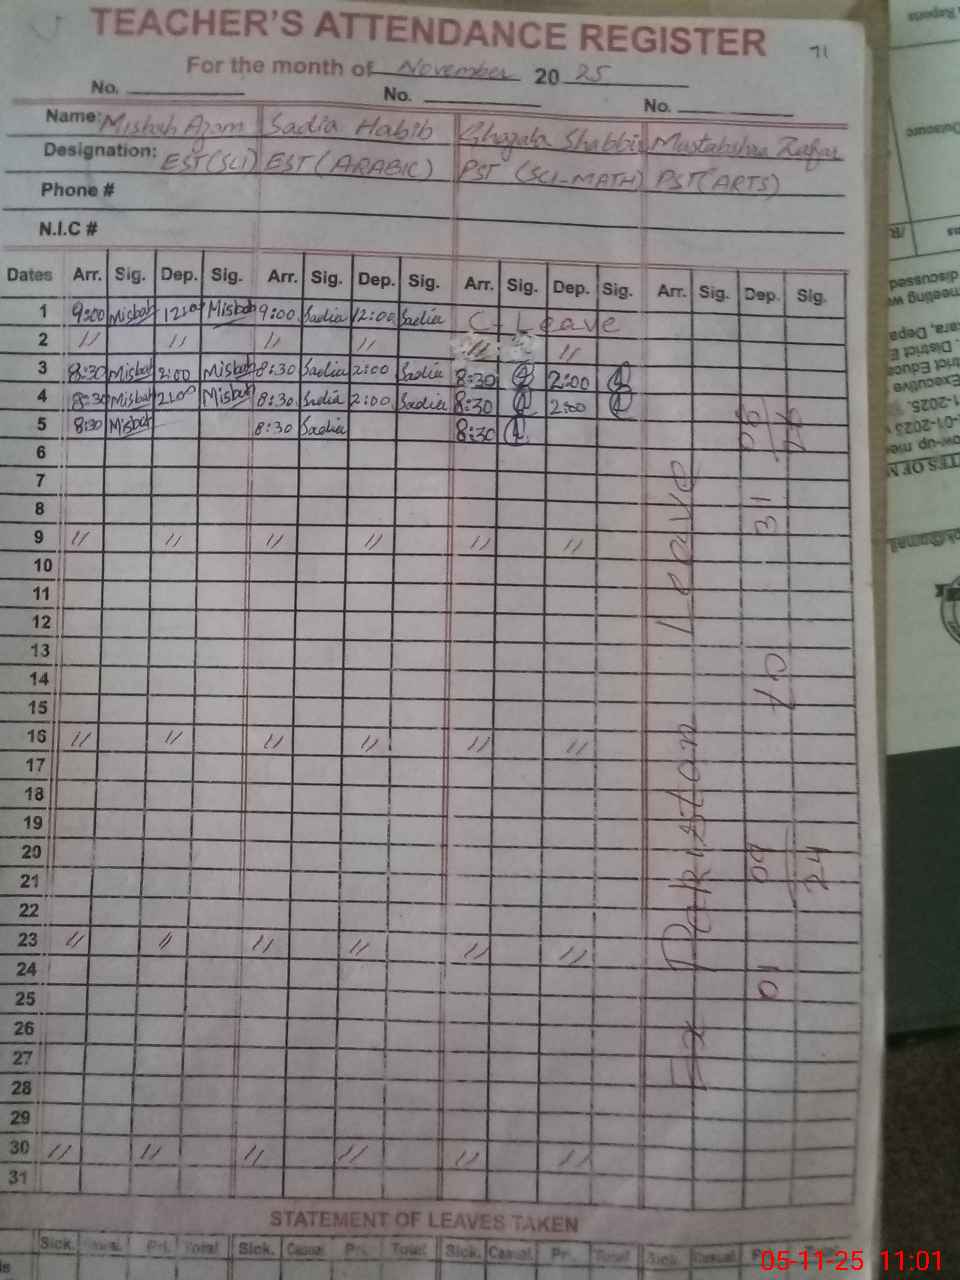 TEACHER'S ATTENDANCE REGISTER
71
For the month of November 2025
No. No. No.
Name: Misbah Azam Sadia Habib Ghazala Shabbir Mustabshra Zafar
Designation: EST(SCI) EST(ARABIC) PST (SCI-MATH) PST(ARTS)
Phone #
N.I.C #
Dates Arr. Sig. Dep. Sig. Arr. Sig. Dep. Sig. Arr. Sig. Dep. Sig. Arr. Sig. Dep. Sig.
1 9:00 Misbah 12:00 Misbah 9:00 Sadia 12:00 Sadia C-Leave
2 // // // // // //
3 8:30 Misbah 2:00 Misbah 8:30 Sadia 2:00 Sadia 8:30 2:00
4 8:30 Misbah 2:00 Misbah 8:30 Sadia 2:00 Sadia 8:30 2:00
5 8:30 Misbah 8:30 Sadia 8:30
6
7
8
9 // // // // // //
10
11
12
13
14
15
16 // // // // // //
17
18
19
20
21
22
23 // // // // // //
24
25
26
27
28
29
30 // // // // // //
31
Ex Pakistan leave
01 09 24 To 31
STATEMENT OF LEAVES TAKEN
Sick. Pri. Total Sick. Casual Pri. Total Sick. Casual. Pri. Total Sick. Casual
Reports
discussed
meeting
District E
Executive
05-11-25 11:01